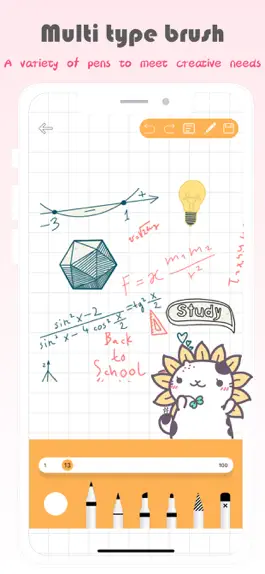 Multi type brush
A variety of pens to meet creative needs
-3 - 1 +
v=√2mg
F = x m₁m₂/r²
sin²x-2/sin²x-4cos²x/2 = tg²x/2
Study
Back
to
School
1 13 100